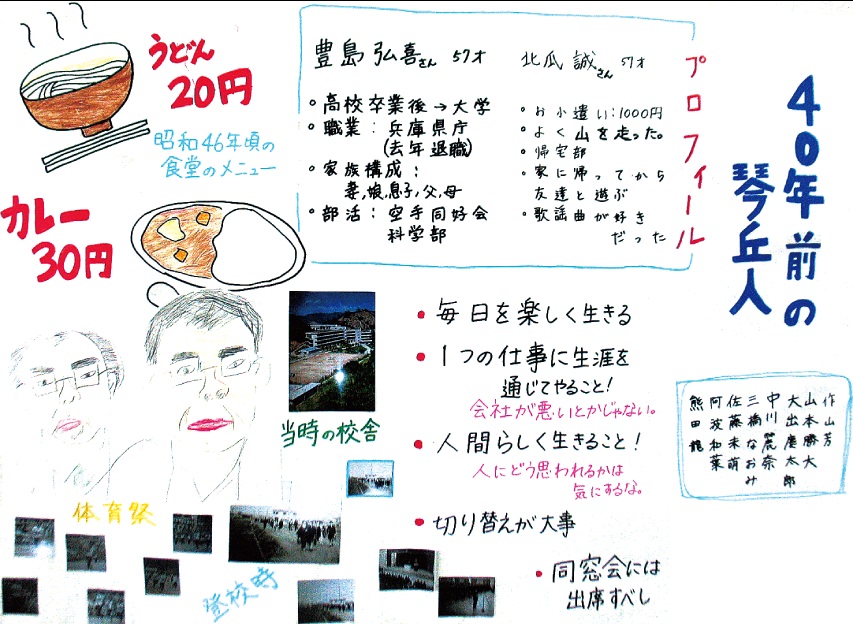 40年前の
琴丘人
プロフィール
豊島 弘喜さん 57才
・高校卒業後→大学
・職業：兵庫県庁
(去年退職)
・家族構成：
妻,娘,息子,父,母
・部活：空手同好会
科学部
北瓜 誠さん 57才
・お小遣い：1000円
・よく山を走った。
・帰宅部
・家に帰ってから
友達と遊ぶ
・歌謡曲が好き
だった
うどん
20円
昭和46年頃の
食堂のメニュー
カレー
30円
・毎日を楽しく生きる
・1つの仕事に生涯を
通じてやること！
会社が悪いとかじゃない。
・人間らしく生きること！
人にどう思われるかは
気にするな。
・切り替えが大事
・同窓会には
出席すべし
当時の校舎
体育祭
登校時
作山芳
山本勝大
大出慶太郎
中川麗奈
三橋なおみ
佐藤未萌
阿波和葉
熊田龍